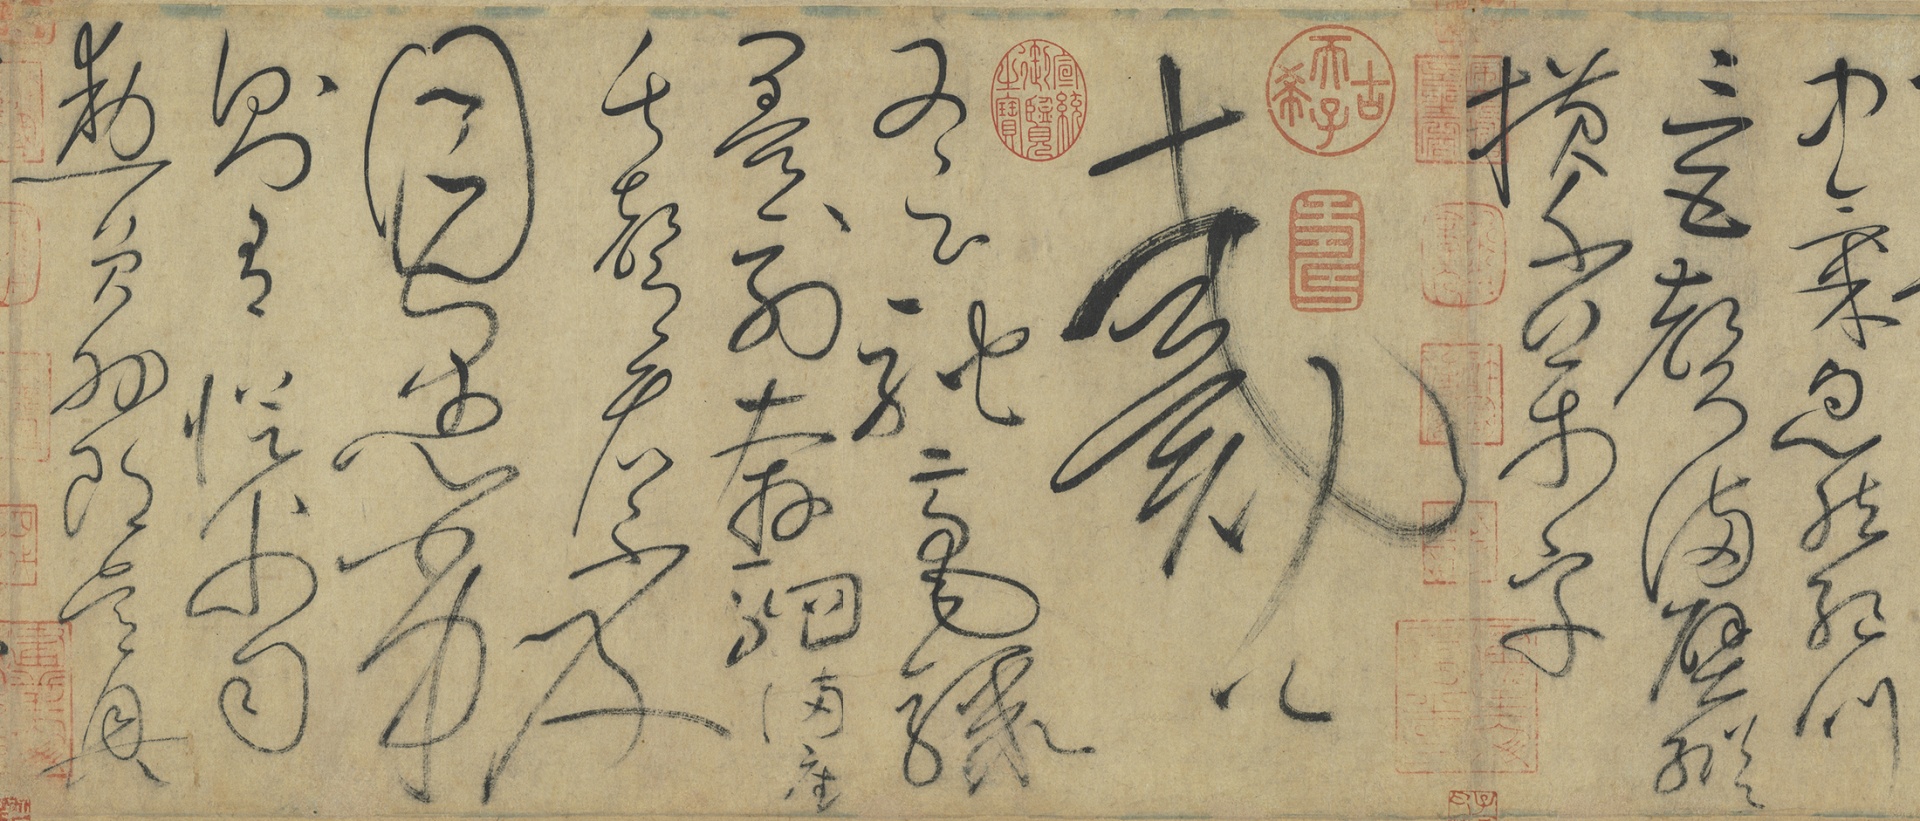 中氣忽然絶叫
三五聲滿壁縱
橫千万字
戴公
又云馳毫驟
墨列奔駟滿座
失聲看不及
目愚劣
則有從父司
勳員外郎吳興
古希天子
宣統御覽之寶